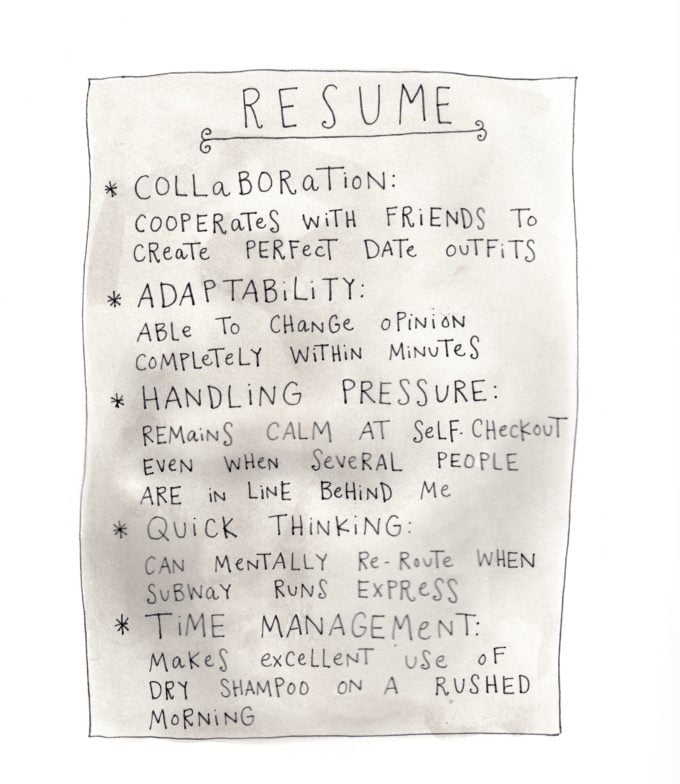 RESUME
* COLLaBORaTiON:
COOPERaTeS WiTH FRiENDS To
CReaTe PERFecT DATe ouTFiTS
* ADAPTABiLiTY:
ABLe To CHaNGe oPiNioN
COMPLeTeLY WiTHiN MiNuTeS
* HANDLiNG PRESSURE:
REMaiNS CALM AT SeLF-CHeckouT
EVeN WHeN SeVeRAL PEOPLE
ARE iN LiNE BeHiND Me
* QUiCK THiNKiNG:
CAN MeNTALLY Re-RouTe WHEN
SuBWaY RUNS EXPReSS
* TiME MANAGEMeNT:
MaKeS exceLLeNT uSe oF
DRY SHAMPoo oN A RUSHED
MoRNiNG